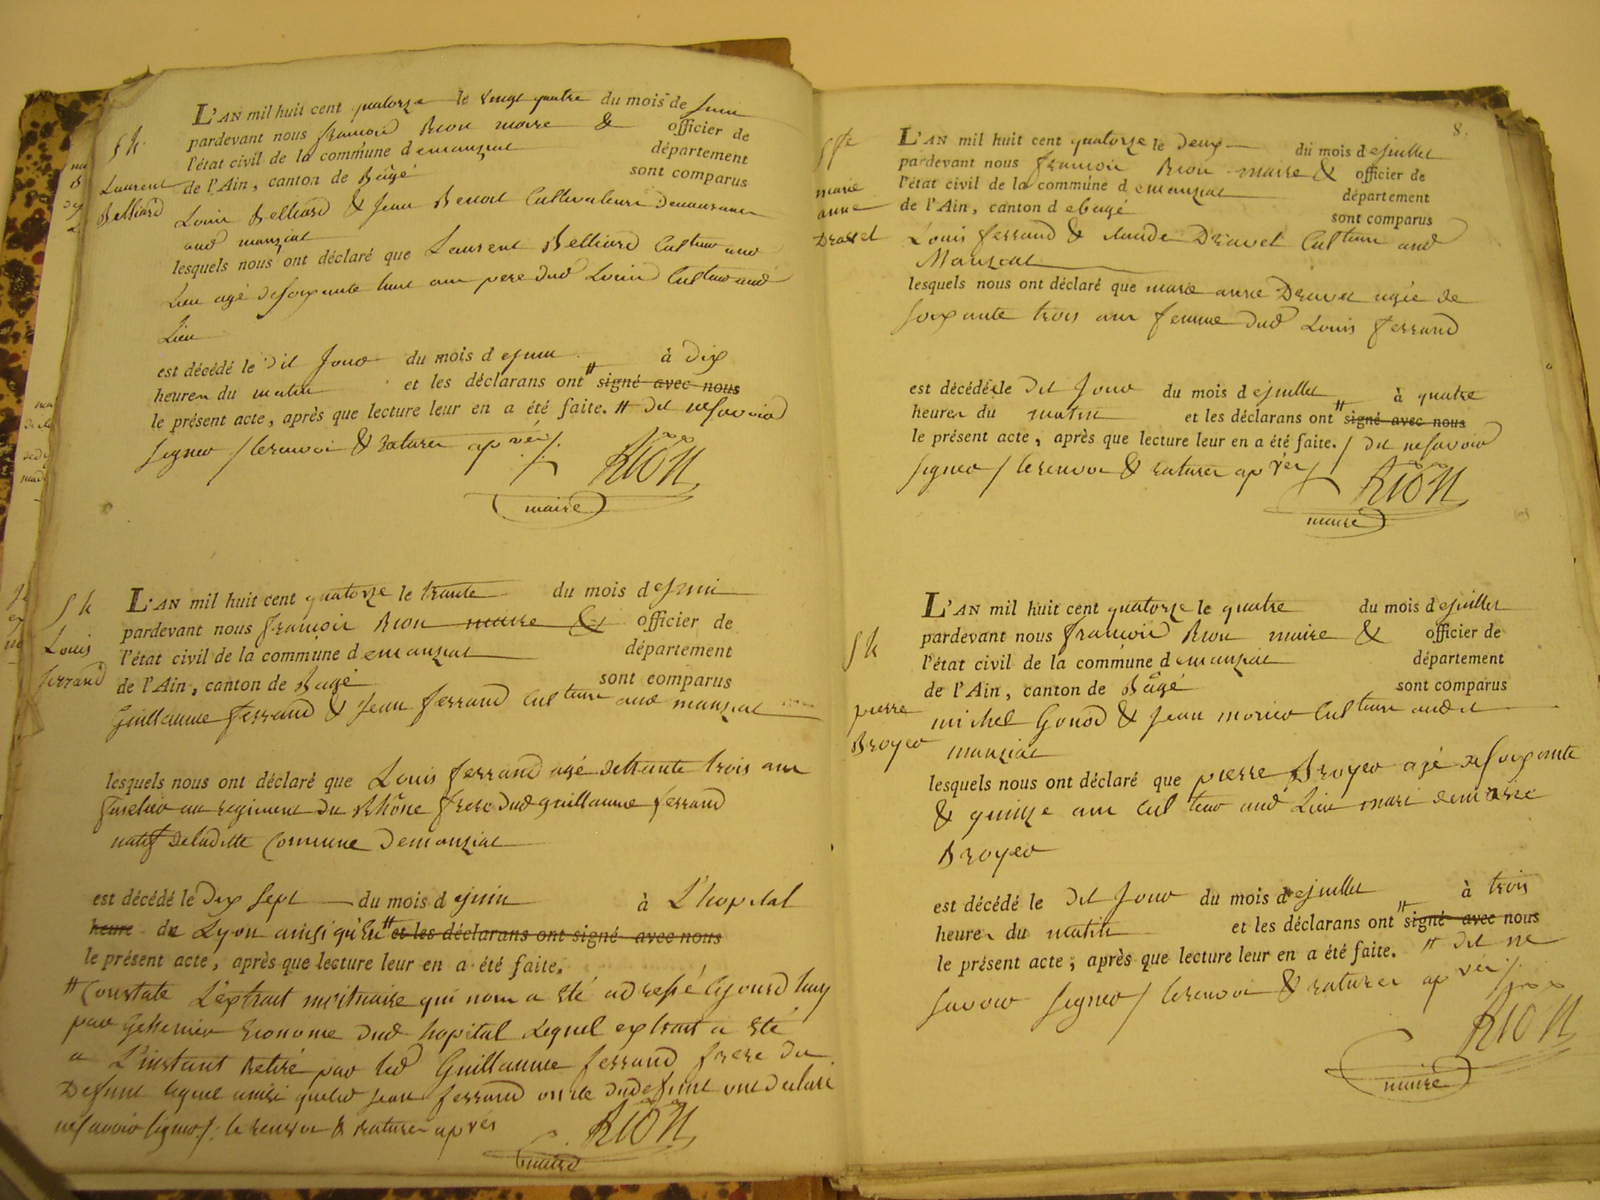 L'AN mil huit cent quatorze le vingt quatre du mois de juin
pardevant nous françois Rion maire & officier de
l'état civil de la commune de manziat département
de l'Ain, canton de Bâgé sont comparus
Laurent
Belliard
Louis Belliard & jean Benoit Cultivateurs demeurans
aud manziat
lesquels nous ont déclaré que Laurent Belliard Cultiv aud
Lieu agé de soixante huit ans pere dud Louis Cultiv aud
Lieu
est décédé le dit jour du mois de juin à dix
heures du matin et les déclarans ont signé avec nous
le présent acte, après que lecture leur en a été faite. dit ne savoir
signer / le renvoi & ratures ap vés /.
RION
maire
L'AN mil huit cent quatorze le trente du mois de juin
pardevant nous françois Rion maire & officier de
l'état civil de la commune de manziat département
de l'Ain, canton de Bagé sont comparus
Louis
ferrand
Guillaume ferrand & jean ferrand cultiv aud manziat
lesquels nous ont déclaré que Louis ferrand agé de trente trois ans
fuselier au regiment du Rhône frere dud guillaume ferrand
natif de laditte Commune de manziat
est décédé le dix sept du mois de juin à L'hopital
heure de Lyon ainsi qu'en et les déclarans ont signé avec nous
le présent acte, après que lecture leur en a été faite.
Constate L'extrait mortuaire qui nous a été adressé ajourd huy
par Econome dud hopital Lequel extrait a été
a L'instant Retiré par led Guillaume ferrand frere du
Defunt lequel ainsi que led jean ferrand oncle dud defunt ont declaré
ne savoir signer /. le renvoi & ratures ap vés
RION
maire
8.
L'AN mil huit cent quatorze le deux du mois de juillet
pardevant nous françois Rion maire & officier de
l'état civil de la commune de manziat département
de l'Ain, canton de bagé sont comparus
marie
anne
Dravet
Louis ferrand & claude Dravet Cultiv aud
Manziat
lesquels nous ont déclaré que marie anne Dravet agée de
soixante trois ans femme dud Louis ferrand
est décédée le dit jour du mois de juillet à quatre
heures du matin et les déclarans ont signé avec nous
le présent acte, après que lecture leur en a été faite. / dit ne savoir
signer / le renvoi & ratures ap vés /
RION
maire
L'AN mil huit cent quatorze le quatre du mois de juillet
pardevant nous françois Rion maire & officier de
l'état civil de la commune de manziat département
de l'Ain, canton de Bâgé sont comparus
pierre
Broyer
michel Gonod & jean morier Cultiv aud
manziat
lesquels nous ont déclaré que pierre Broyer agé de soixante
& quinze ans cultiv aud Lieu mari de marie
Broyer
est décédé le dit jour du mois de juillet à trois
heures du matin et les déclarans ont signé avec nous
le présent acte, après que lecture leur en a été faite. dit ne
savoir signer / le renvoi & ratures ap vés /.
RION
maire